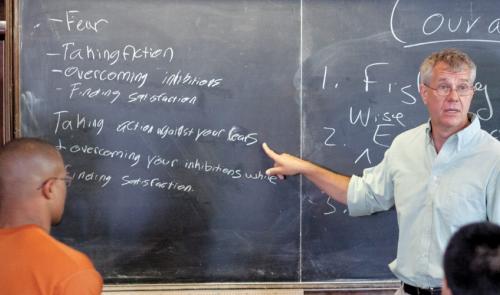 - Fear
- Taking Action
- Overcoming inhibitions
- Finding satisfaction
Taking action against your fears
+ overcoming your inhibitions while
finding satisfaction.
Coura
1. Fis
Wise
2. E
3.